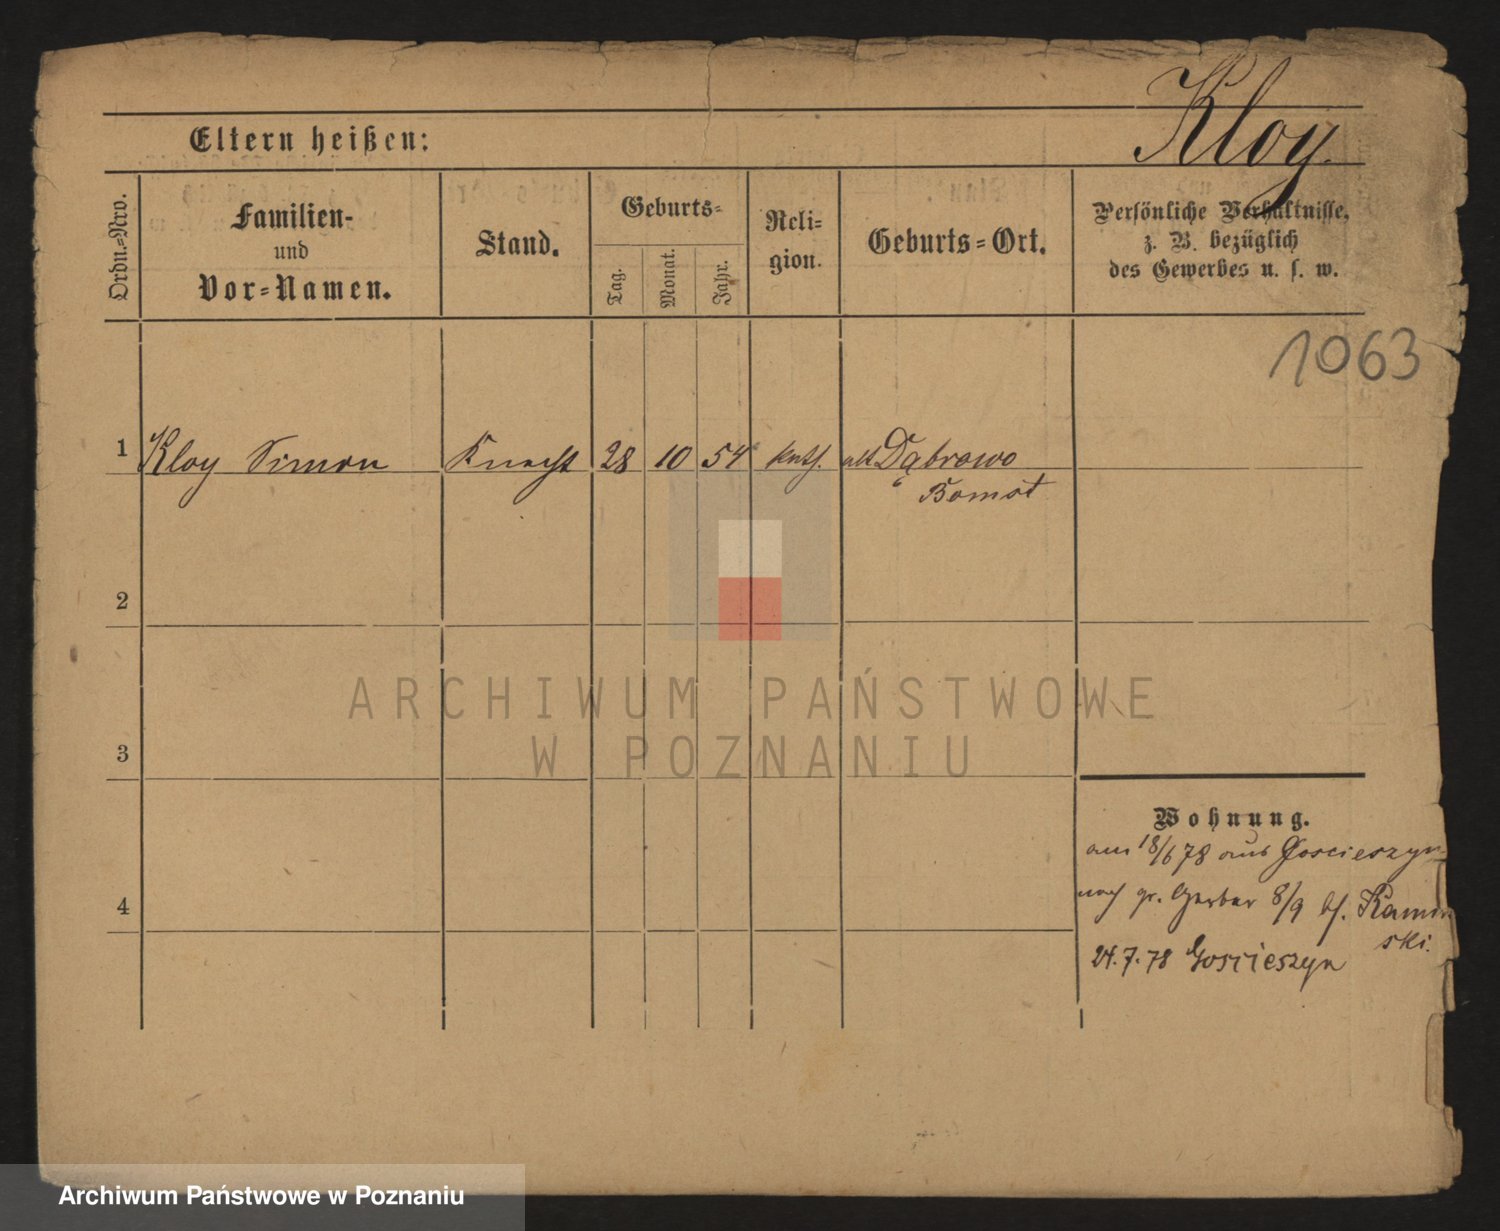 Kloy.
Eltern heißen:
Ordn.=Nro.
Familien-
und
Vor=Namen.
Stand.
Geburts=
Tag.
Monat.
Jahr.
Reli=
gion.
Geburts=Ort.
Persönliche Verhältnisse,
z. B. bezüglich
des Gewerbes u. s. w.
1063
1 Kloy Simon Knecht 28 10 54 kath. alt Dąbrowo
Bomst
2
3
4
Wohnung.
am 18/6 78 aus Goscieszyn
nach gr. Gerber 8/9 bh. Kamin
ski.
24.7.78 Goscieszyn
ARCHIWUM PAŃSTWOWE
W POZNANIU
Archiwum Państwowe w Poznaniu